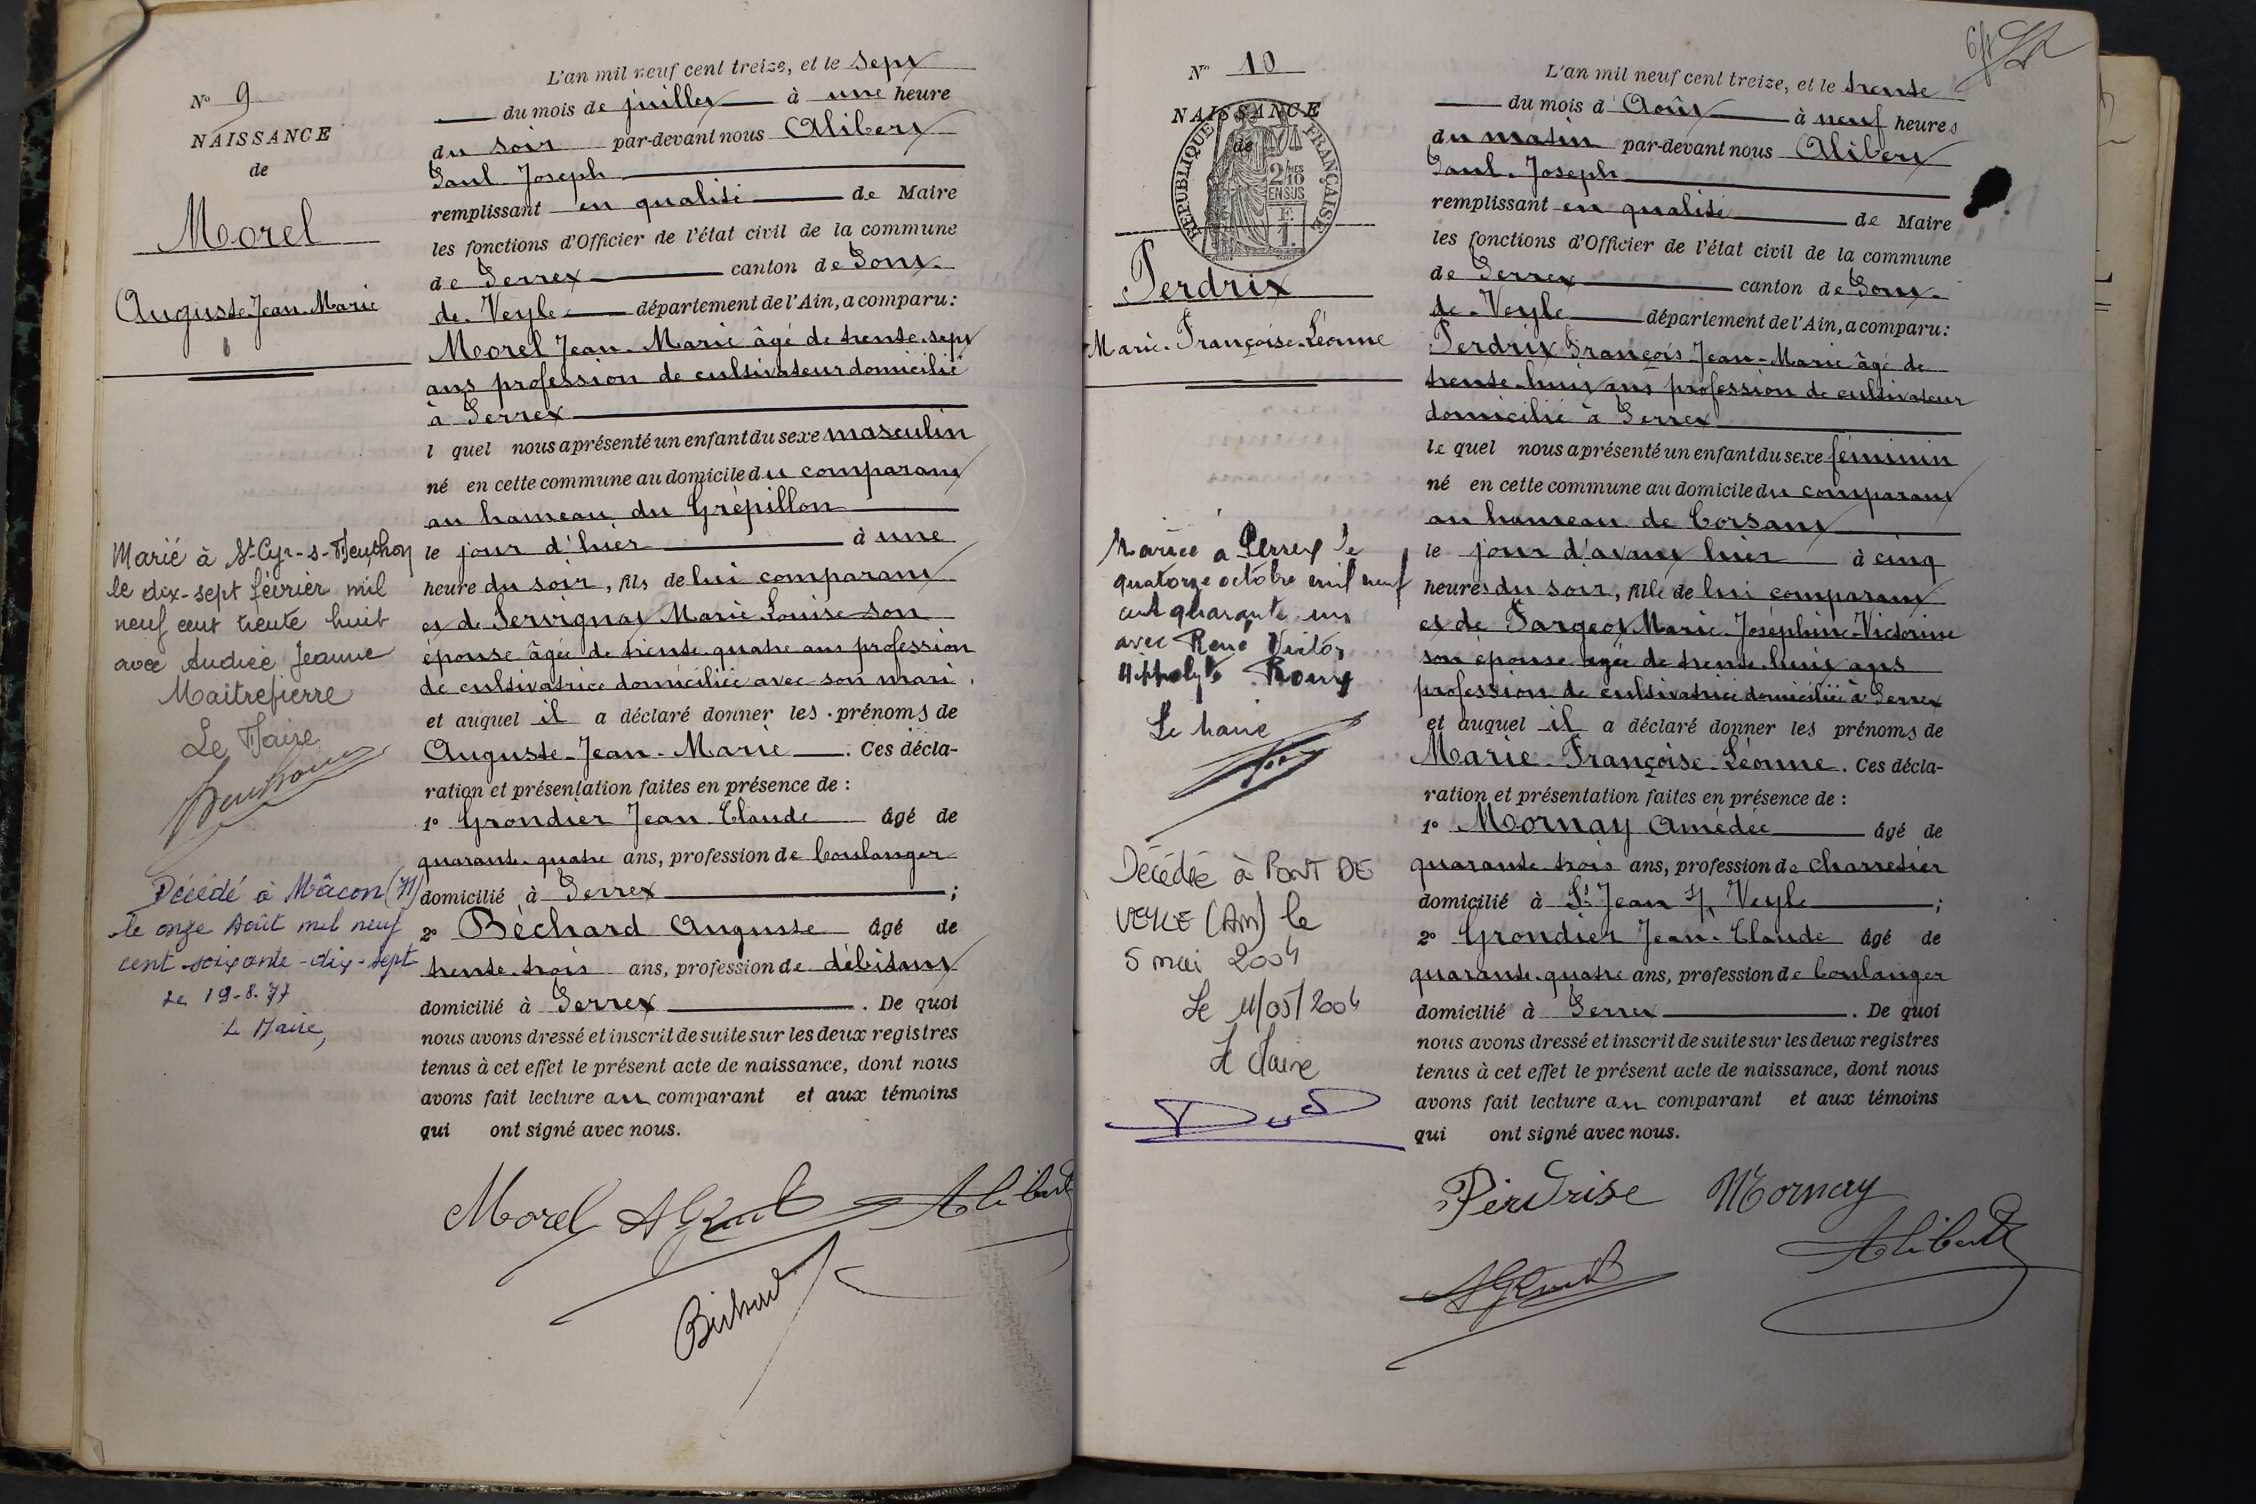 N° 9
NAISSANCE
de
Morel
Auguste Jean Marie
Marié à St Cyr-s-Menthon
le dix-sept février mil
neuf cent trente huit
avec Andrée Jeanne
Maitrepierre
Le Maire
Décédé à Mâcon (71)
le onze Août mil neuf
cent soixante-dix-sept
Le 19-8-77
Le Maire,
L'an mil neuf cent treize, et le sept
du mois de juillet à une heure
du soir par-devant nous Alibert
Paul Joseph
remplissant en qualité de Maire
les fonctions d'Officier de l'état civil de la commune
de Perrex canton de Pont-
de-Veyle département de l'Ain, a comparu:
Morel Jean-Marie âgé de trente-sept
ans profession de cultivateur domicilié
à Perrex
l quel nous a présenté un enfant du sexe masculin
né en cette commune au domicile du comparant
au hameau du Grépillon
le jour d'hier à une
heure du soir, fils de lui comparant
et de Servignat Marie Louise son
épouse âgée de trente-quatre ans profession
de cultivatrice domiciliée avec son mari.
et auquel il a déclaré donner les prénoms de
Auguste-Jean-Marie. Ces décla-
ration et présentation faites en présence de :
1° Grondier Jean-Claude âgé de
quarante-quatre ans, profession de boulanger
domicilié à Perrex ;
2° Béchard Auguste âgé de
trente-trois ans, profession de débitant
domicilié à Perrex. De quoi
nous avons dressé et inscrit de suite sur les deux registres
tenus à cet effet le présent acte de naissance, dont nous
avons fait lecture au comparant et aux témoins
qui ont signé avec nous.
Morel Alibert
Béchard
N° 10
NAISSANCE
de
RÉPUBLIQUE FRANÇAISE
2/10
EN SUS
Perdrix
Marie-Françoise-Léonne
Mariée à Perrex le
quatorze octobre mil neuf
cent quarante un
avec René Victor
Hippolyte
Le maire
Décédée à PONT DE
VEYLE (AIN) le
5 mai 2004
Le 11/05/2004
Le Maire
L'an mil neuf cent treize, et le trente
du mois d'Août à neuf heures
du matin par-devant nous Alibert
Paul-Joseph
remplissant en qualité de Maire
les fonctions d'Officier de l'état civil de la commune
de Perrex canton de Pont-
de-Veyle département de l'Ain, a comparu:
Perdrix François Jean-Marie âgé de
trente-huit ans profession de cultivateur
domicilié à Perrex
le quel nous a présenté un enfant du sexe féminin
né en cette commune au domicile du comparant
au hameau de Corsant
le jour d'avant hier à cinq
heures du soir, fille de lui comparant
et de Fargeot Marie-Joséphine-Victorine
son épouse âgée de trente-huit ans
profession de cultivatrice domiciliée à Perrex
et auquel il a déclaré donner les prénoms de
Marie-Françoise-Léonne. Ces décla-
ration et présentation faites en présence de :
1° Mornay Amédée âgé de
quarante-trois ans, profession de charretier
domicilié à St Jean s/ Veyle ;
2° Grondier Jean-Claude âgé de
quarante-quatre ans, profession de boulanger
domicilié à Perrex. De quoi
nous avons dressé et inscrit de suite sur les deux registres
tenus à cet effet le présent acte de naissance, dont nous
avons fait lecture au comparant et aux témoins
qui ont signé avec nous.
Perdrise Mornay
Alibert